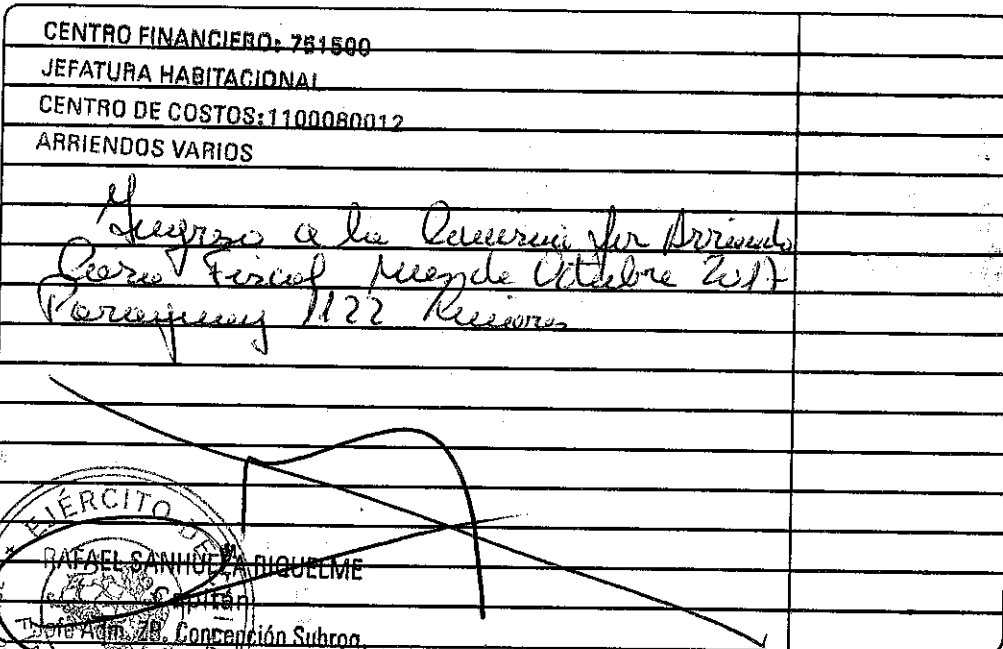 CENTRO FINANCIERO: 751500
JEFATURA HABITACIONAL
CENTRO DE COSTOS:1100080012
ARRIENDOS VARIOS
Ingreso a la por Arriendo
Casa Fiscal mes de Octubre 2017
Paraguay 1122
EJÉRCITO DE
RAFAEL SANHUEZA RIQUELME
Capitán
Jefe Adm. ZB. Concepción Subrog.